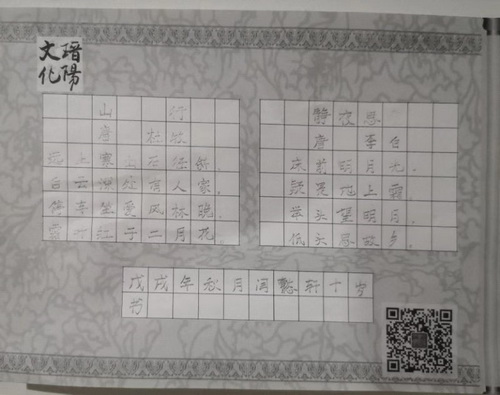 陽
文化
山行
唐 杜牧
远上寒山石径斜，
白云深处有人家。
停车坐爱枫林晚，
霜叶红于二月花。
静夜思
唐 李白
床前明月光，
疑是地上霜。
举头望明月，
低头思故乡。
戊戌年秋月闫懿轩十岁
书